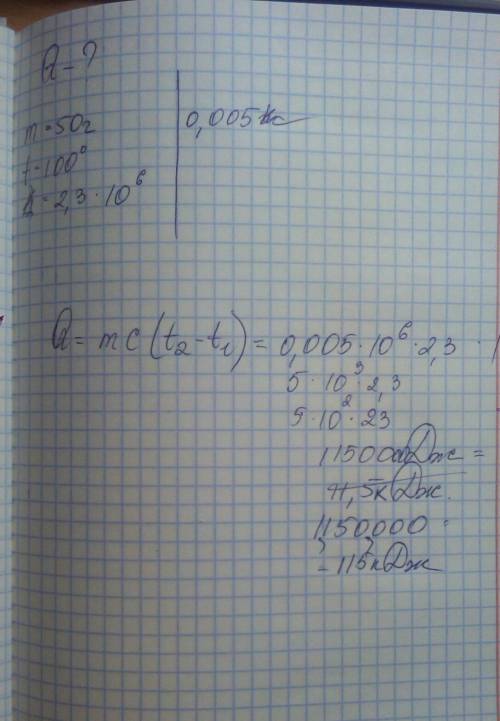 Q - ?
m = 50г 0,005кг
t = 100°
L = 2,3 · 10⁶
Q = mc(t₂ - t₁) = 0,005 · 10⁶ · 2,3 ·
5 · 10³ · 2,3
5 · 10² · 23
115000Дж =
11,5кДж.
1150000
= 115кДж